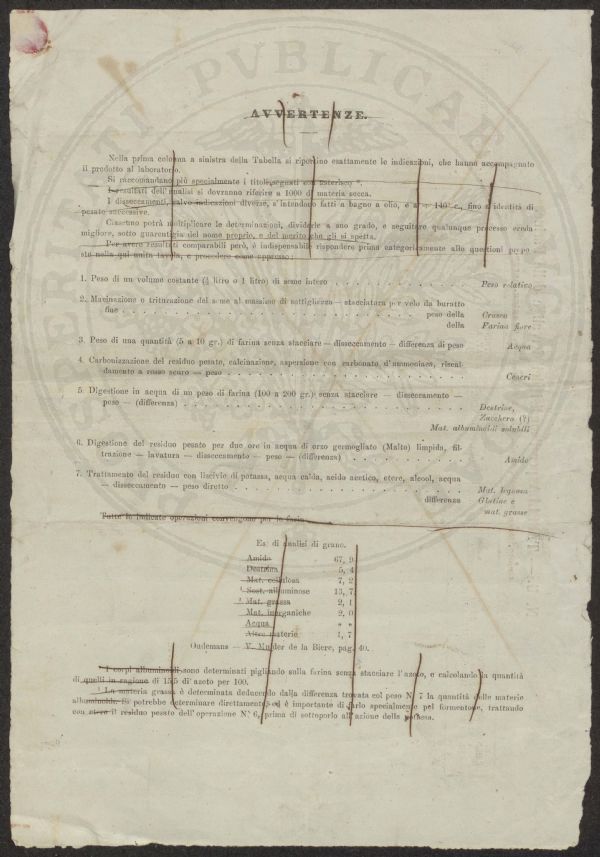 AVVERTENZE.
Nella prima colonna a sinistra della Tabella si riportino esattamente le indicazioni, che hanno accompagnato
il prodotto al laboratorio.
Si raccomandano più specialmente i titoli segnati con asterisco *.
I resultati dell'analisi si dovranno riferire a 1000 di materia secca.
I disseccamenti, salvo indicazioni diverse, s'intendono fatti a bagno a olio, e a + 140° c., fino a identità di
pesate successive.
Ciascuno potrà moltiplicare le determinazioni, dividerle a suo grado, e seguitare qualunque processo creda
migliore, sotto guarentigia del nome proprio, e del merito che gli si spetta.
Per avere resultati comparabili però, è indispensabile rispondere prima categoricamente alle questioni propo
ste nella qui unita tavola, e procedere come appresso:
1. Peso di un volume costante (½ litro o 1 litro) di seme intero Peso relativo
2. Macinazione o triturazione del seme al massimo di sottigliezza — stacciatura per velo da buratto
fine peso della Crusca
della Farina fiore
3. Peso di una quantità (5 a 10 gr.) di farina senza stacciare — disseccamento — differenza di peso Acqua
4. Carbonizzazione del residuo pesato, calcinazione, aspersione con carbonato d'ammoniaca, riscal-
damento a rosso scuro — peso Ceneri
5. Digestione in acqua di un peso di farina (100 a 200 gr.) senza stacciare — disseccamento —
peso — (differenza) Destrine,
Zucchero (?)
Mat. albuminoidi solubili
6. Digestione del residuo pesato per due ore in acqua di orzo germogliato (Malto) limpida, fil-
trazione — lavatura — disseccamento — peso — (differenza) Amido
7. Trattamento del residuo con liscivie di potassa, acqua calda, acido acetico, etere, alcool, acqua
— disseccamento — peso diretto Mat. legnosa
differenza Glutine e
mat. grasse
Tutte le indicate operazioni convengono per la farina
Es: di analisi di grano.
Amido 67, 9
Destrina 5, 4
Mat. cellulosa 7, 2
¹ Sost. albuminose 13, 7
² Mat. grassa 2, 1
Mat. inorganiche 2, 0
Acqua " "
Altre materie 1, 7
Oudemans — V. Mulder de la Biere, pag. 40.
¹ I corpi albuminoidi sono determinati pigliando sulla farina senza stacciare l'azoto, e calcolando la quantità
di quelli in ragione di 15,5 di azoto per 100.
² La materia grassa è determinata deducendo dalla differenza trovata col peso N.° 7 la quantità delle materie
albuminoidi. Si potrebbe determinare direttamente ed è importante di farlo specialmente pel formentone, trattando
con etere il residuo pesato dell'operazione N.° 6, prima di sottoporlo all'azione della potassa.